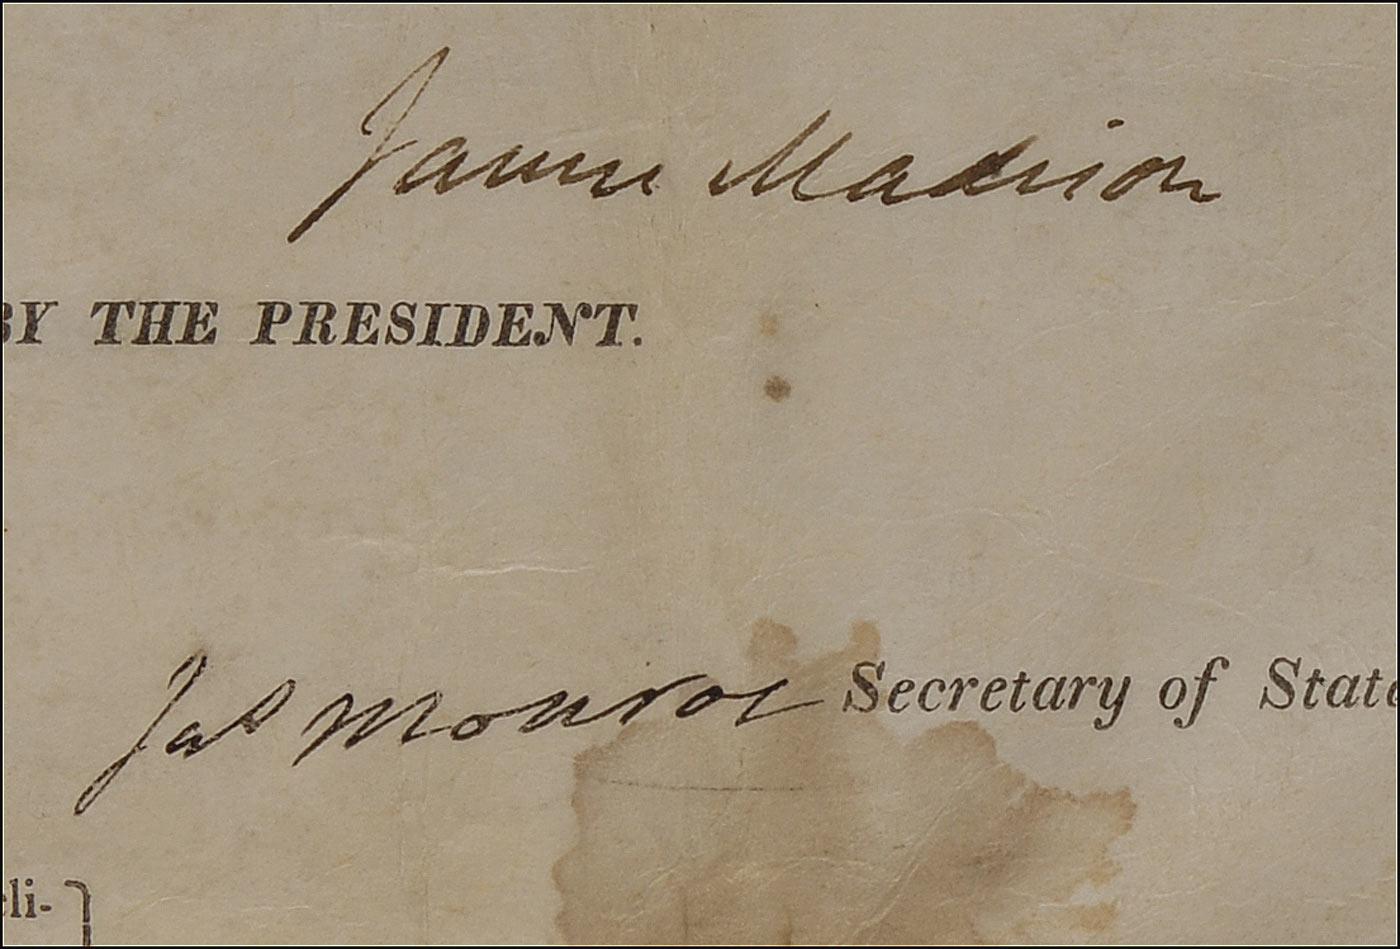 James Madison
BY THE PRESIDENT.
Jas Monroe Secretary of State
eli-